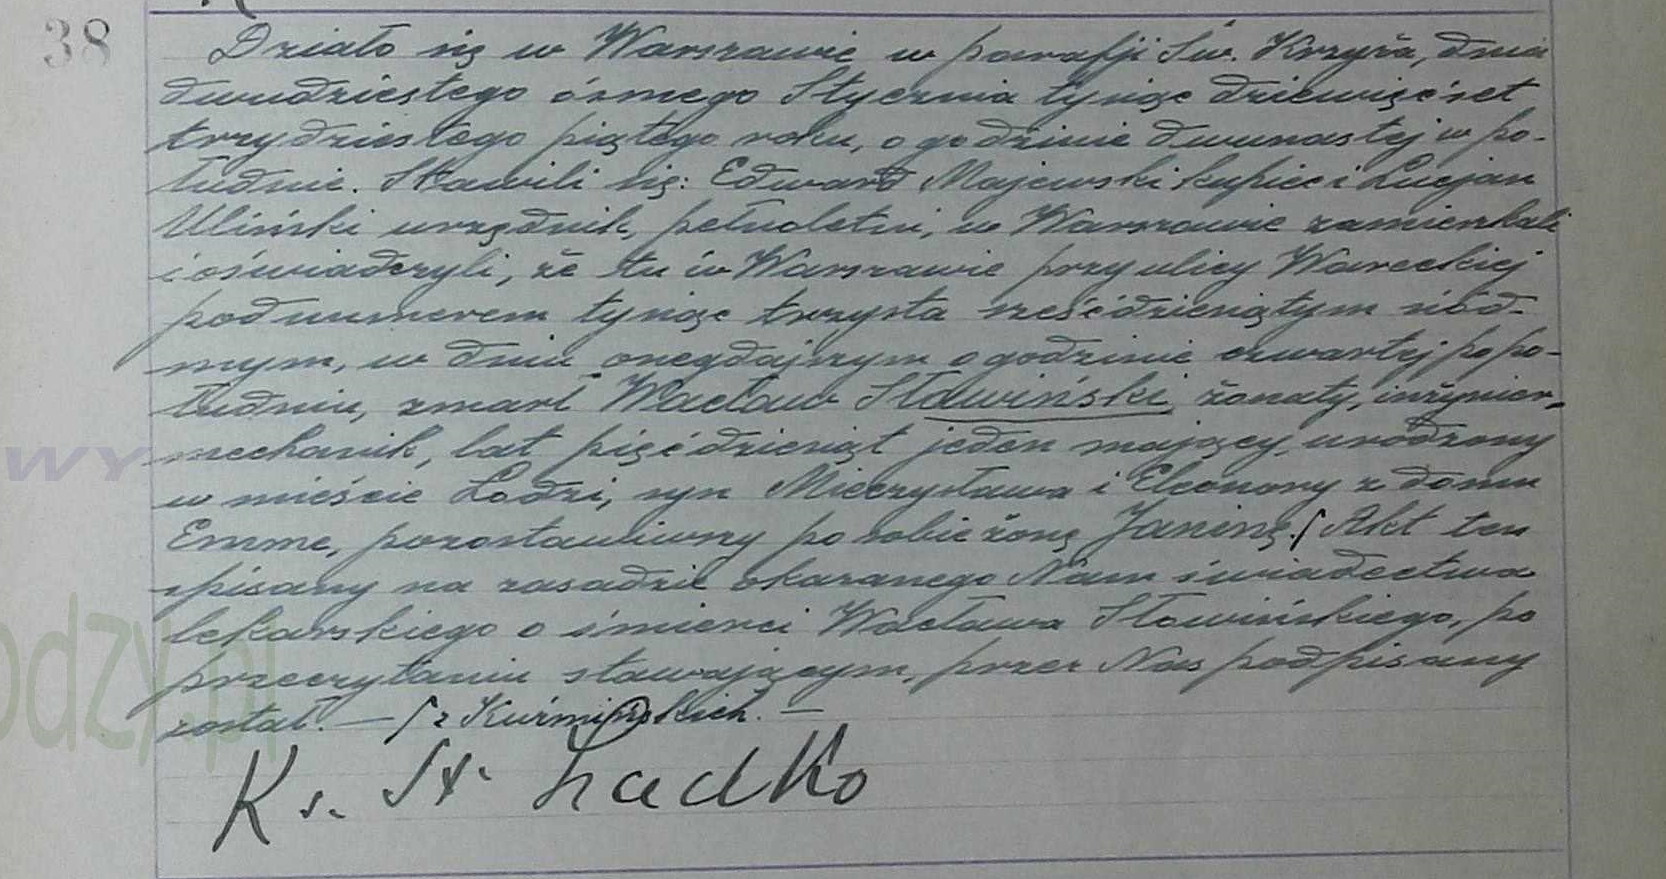 38
Działo się w Warszawie w parafji Św. Krzyża, dnia
dwudziestego ósmego Stycznia tysiąc dziewięćset
trzydziestego piątego roku, o godzinie dwunastej w po-
łudnie. Stawili się: Edward Majewski kupiec i Lucjan
Uliński urzędnik, pełnoletni, w Warszawie zamieszkali
i oświadczyli, że tu w Warszawie przy ulicy Wareckiej
pod numerem tysiąc trzysta sześćdziesiątym siód-
mym, w dniu onegdajszym o godzinie czwartej po po-
łudniu, zmarł Wacław Sławiński, żonaty, inżynier-
mechanik, lat pięćdziesiąt jeden mający, urodzony
w mieście Łodzi, syn Mieczysława i Eleonory z domu
Emme, pozostawiwszy po sobie żonę Janinę. ſ Akt ten
spisany na zasadzie okazanego Nam świadectwa
lekarskiego o śmierci Wacława Sławińskiego, po
przeczytaniu stawającym, przez Nas podpisany
został. — ſ z Kuźmińskich. —
Ks. St. Ładko
WY
odzy.pl